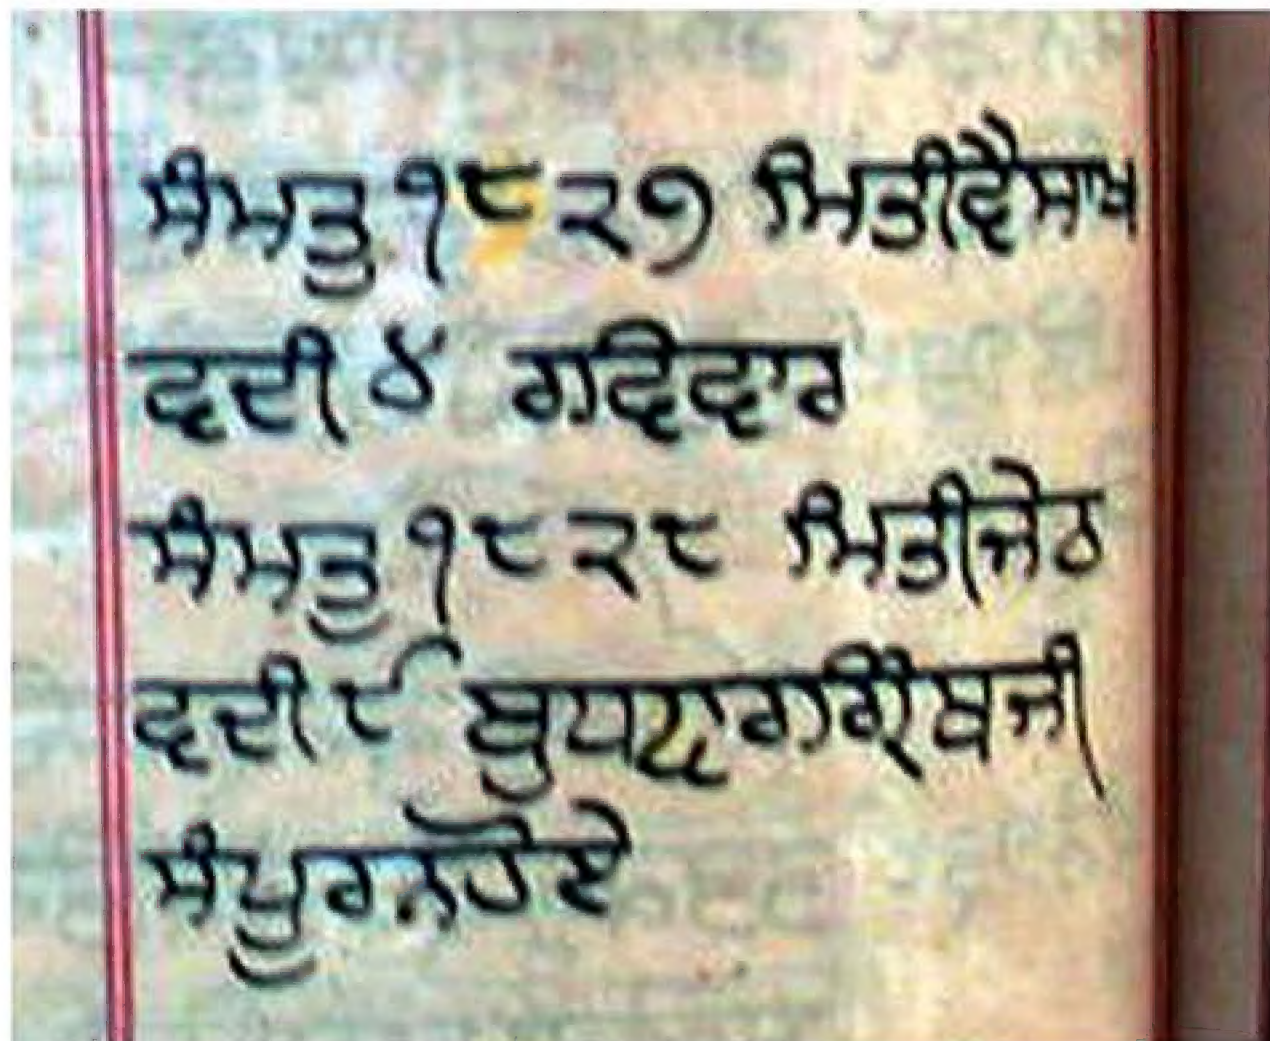 ਸੰਮਤੁ ੧੮੨੭ ਮਿਤੀ ਵੈਸਾਖ
ਵਦੀ ੪ ਰਵਿਵਾਰ
ਸੰਮਤੁ ੧੮੨੮ ਮਿਤੀ ਜੇਠ
ਵਦੀ ੮ ਬੁਧਵਾਰ ਗ੍ਰਿੰਥ ਜੀ
ਸੰਪੂਰਨ ਹੋਏ